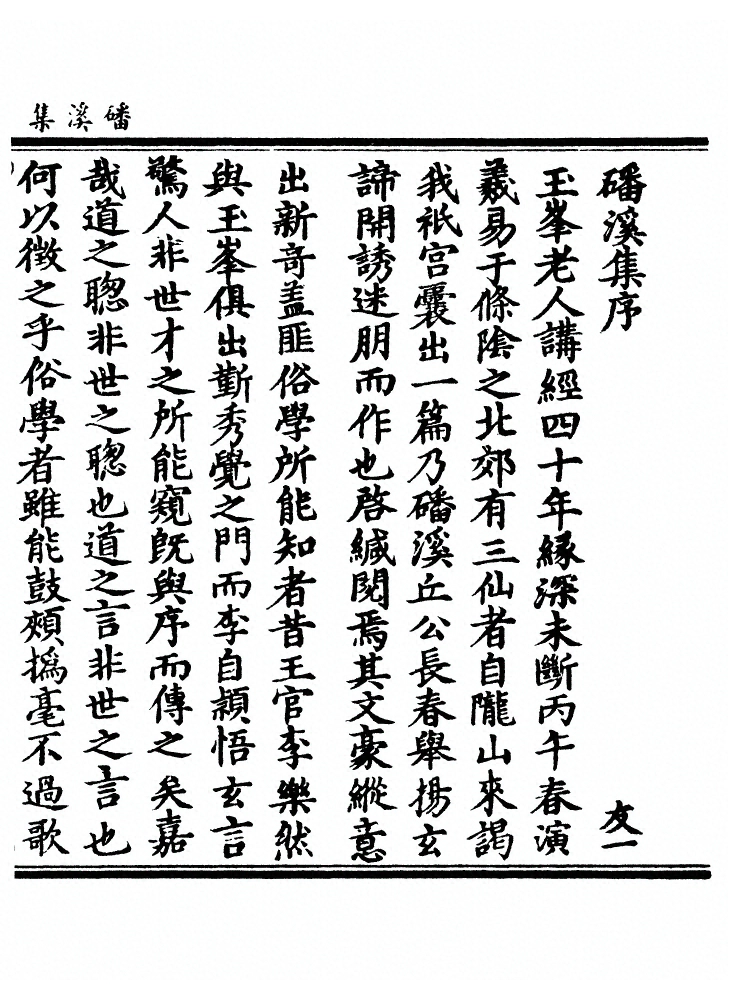 磻溪集
磻溪集序
友一
玉峯老人講經四十年緣深未斷丙午春演
羲易于條陰之北郊有三仙者自隴山來謁
我祇宮囊出一篇乃磻溪丘公長春舉揚玄
諦開誘迷朋而作也啓緘閱焉其文豪縱意
出新奇盖匪俗學所能知者昔王官李樂然
與玉峯俱出蘄秀覺之門而李自穎悟玄言
驚人非世才之所能窺旣與序而傳之矣嘉
哉道之聰非世之聰也道之言非世之言也
何以徵之乎俗學者雖能鼓頰撝毫不過歌